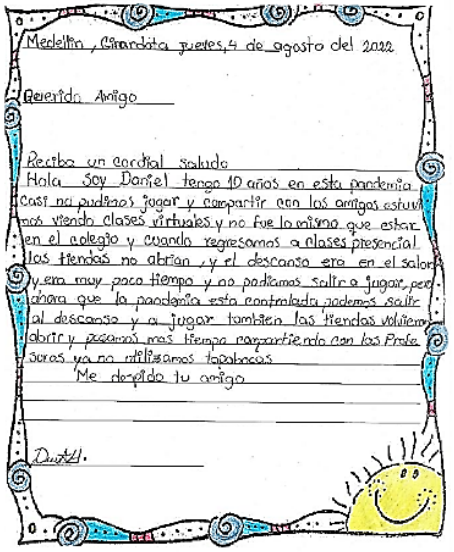 Medellin, Girardota jueves, 4 de agosto del 2022
Querido Amigo
Reciba un cordial saludo
Hola soy Daniel tengo 10 años en esta pandemia
casi no pudimos jugar y compartir con los amigos estuvi
mos viendo clases virtuales y no fue lo mismo que estar
en el colegio y cuando regresamos a clases presencial
las tiendas no abrian, y el descanso era en el salon
y era muy poco tiempo y no podiamos salir a jugar, pero
ahora que la pandemia esta controlada podemos salir
al descanso y a jugar tambien las tiendas volvieron
abrir y pasamos mas tiempo compartiendo con los Profe
sores ya no utilizamos tapabocas
Me despido tu amigo